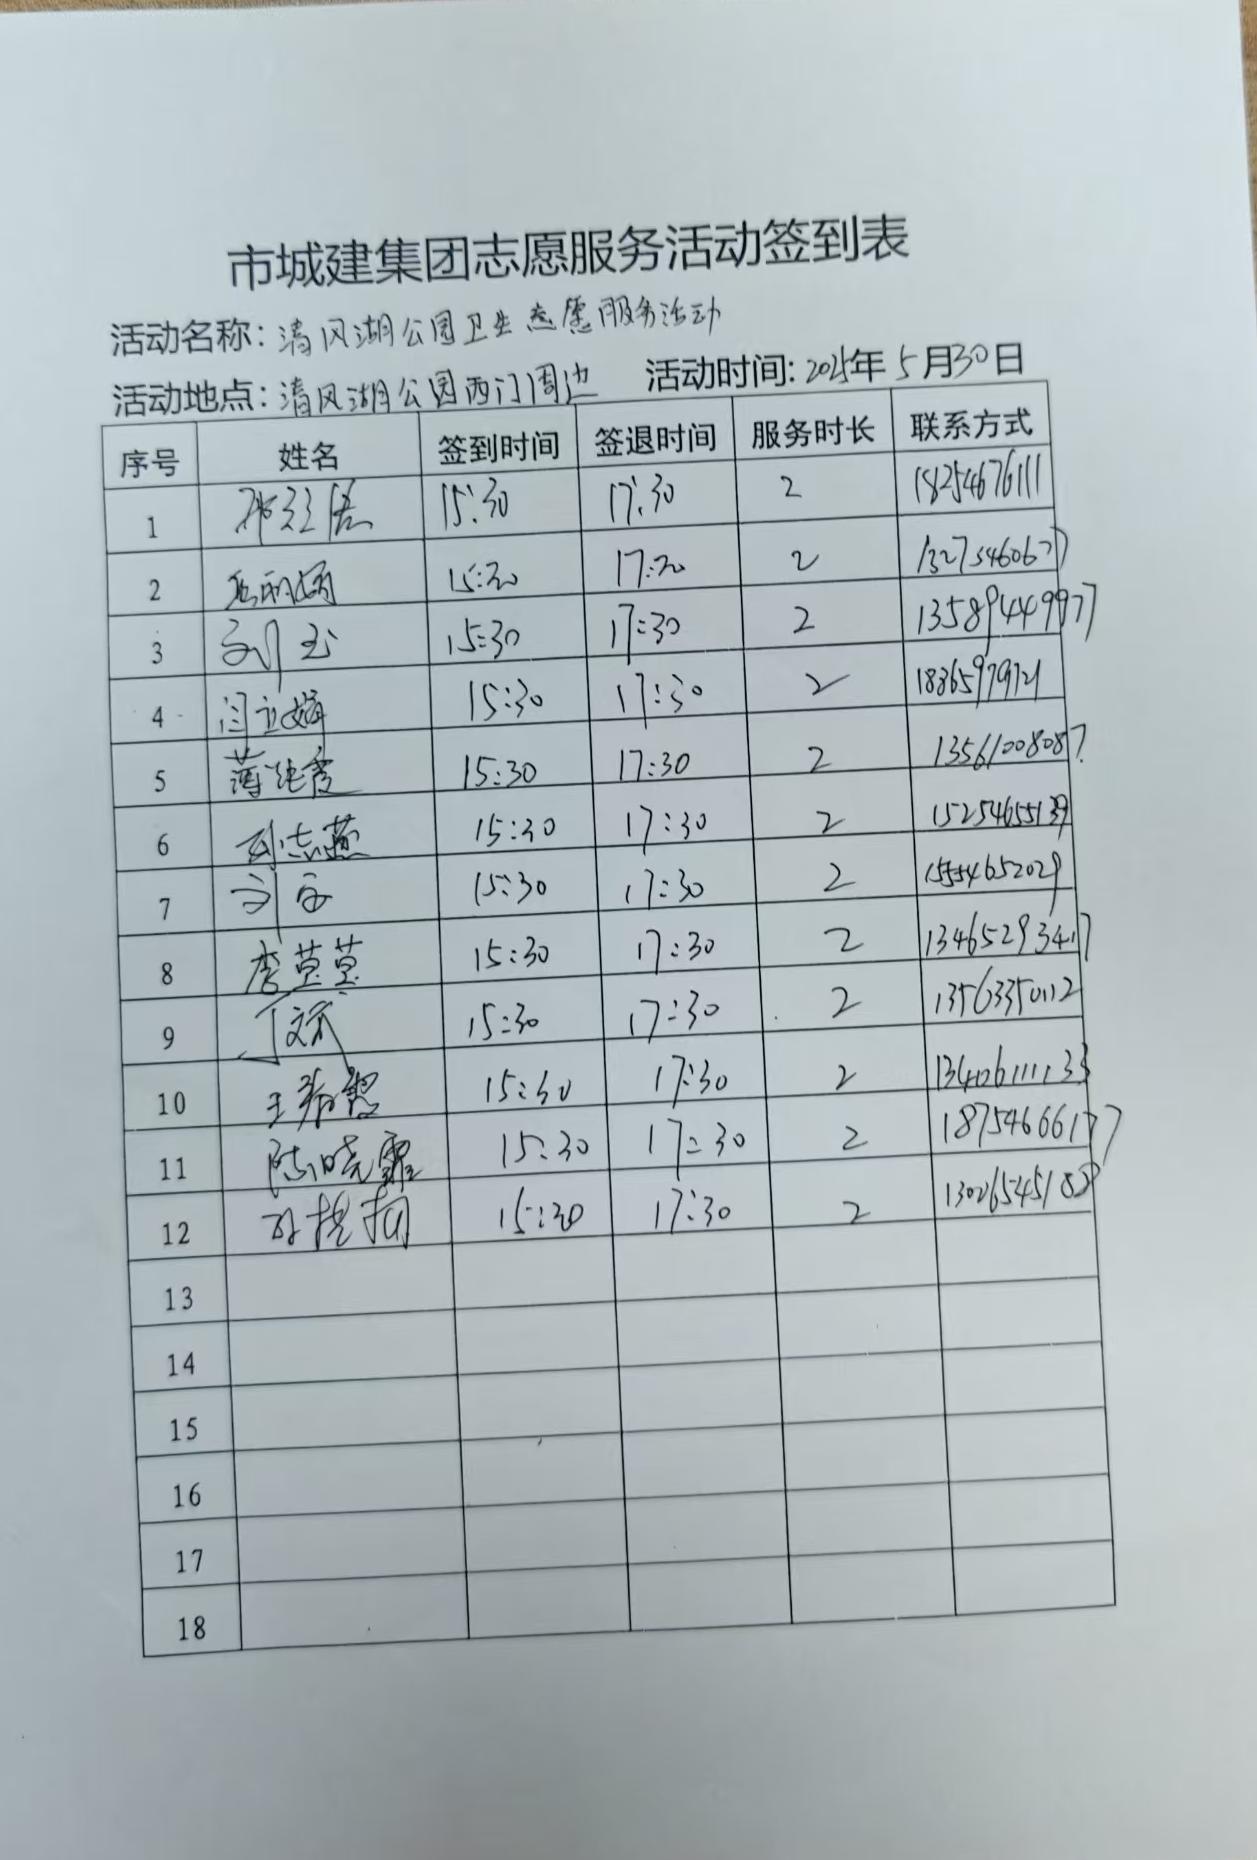 市城建集团志愿服务活动签到表
活动名称: 清风湖公园卫生志愿服务活动
活动地点: 清风湖公园西门周边 活动时间: 2025年5月30日
序号 姓名 签到时间 签退时间 服务时长 联系方式
1 15:30 17:30 2 18254676111
2 15:30 17:30 2 13275460677
3 刘玉 15:30 17:30 2 13589449977
4 闫立娟 15:30 17:30 2
5 薄纯霞 15:30 17:30 2 13561008087
6 刘志燕 15:30 17:30 2 15254655139
7 15:30 17:30 2 15554652029
8 李莹莹 15:30 17:30 2 13465293417
9 丁斌 15:30 17:30 2 13563350112
10 15:30 17:30 2 13406111133
11 陈晓霏 15:30 17:30 2 18754666177
12 15:30 17:30 2
13
14
15
16
17
18